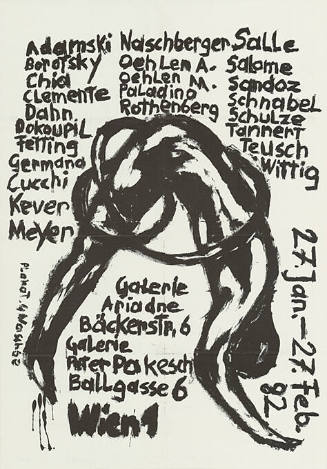 Adamski
Borofsky
Chia
Clemente
Dahn
Dokoupil
Fetting
Germana
Cucchi
Kever
Meyer
Naschberger
Oehlen A.
Oehlen M.
Paladino
Rothenberg
Salle
Salome
Sandoz
Schnabel
Schulze
Tannert
Teusch
Wittig
27. Jan.—27 Feb.
82
Galerie
Ariadne
Bäckerstr. 6
Galerie
Peter Pakesch
Ballgasse 6
Wien 1